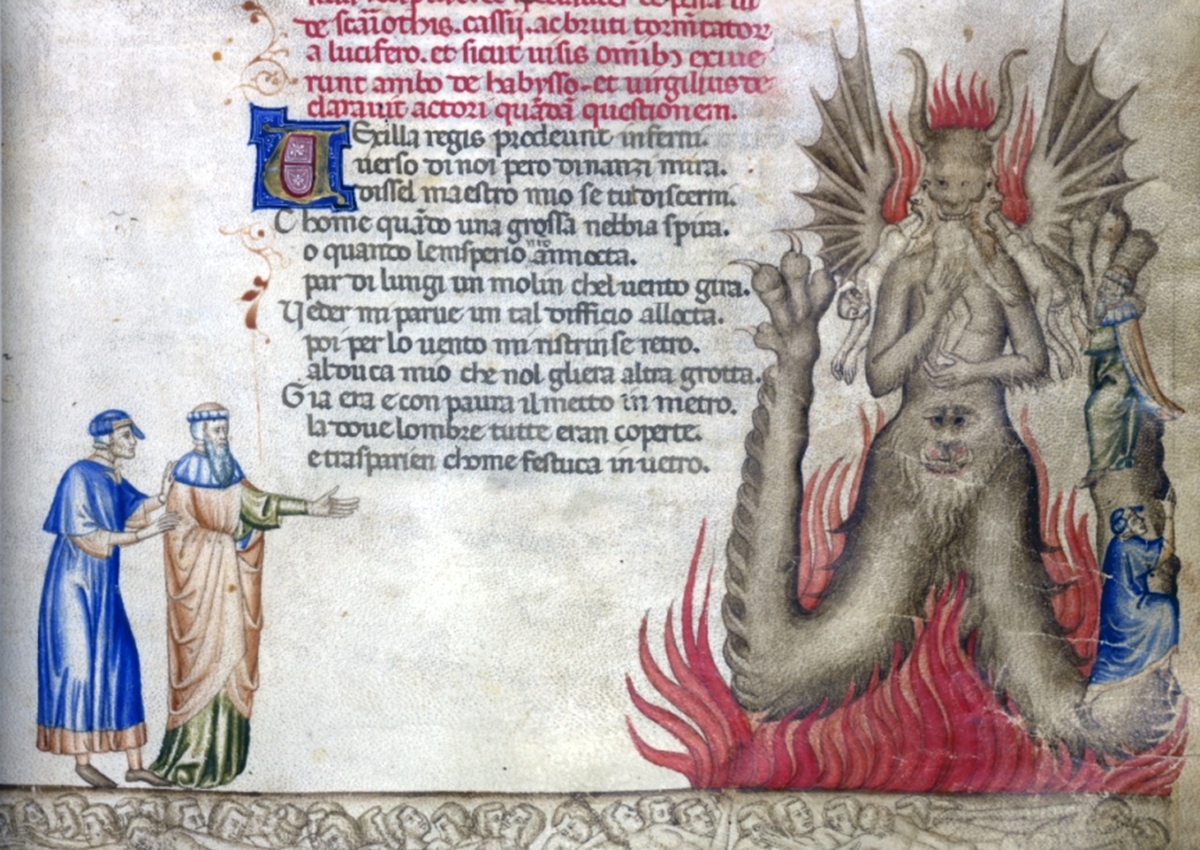 de scariothis. cassii. ac bruti tormētatorȝ
a lucifero. et sicut uisis omībꝫ exiue
runt ambo de habysso. et uirgilius de
clarauit actori quādā questionem.
UExilla regis prodeunt inferni.
uerso di noi pero dinanzi mira.
dissel maestro mio se tu discerni.
Chome quādo una grossa nebbia spira.
o quanto lemisperio nrō annocta.
par di lungi un molin chel uento gira.
Veder mi parue un tal difficio allocta.
poi per lo uento mi ristrinse retro.
al duca mio che nol glera altra grotta.
Gia era e con paura il metto in metro.
la doue lombre tutte eran coperte.
e trasparien chome festuca in uetro.